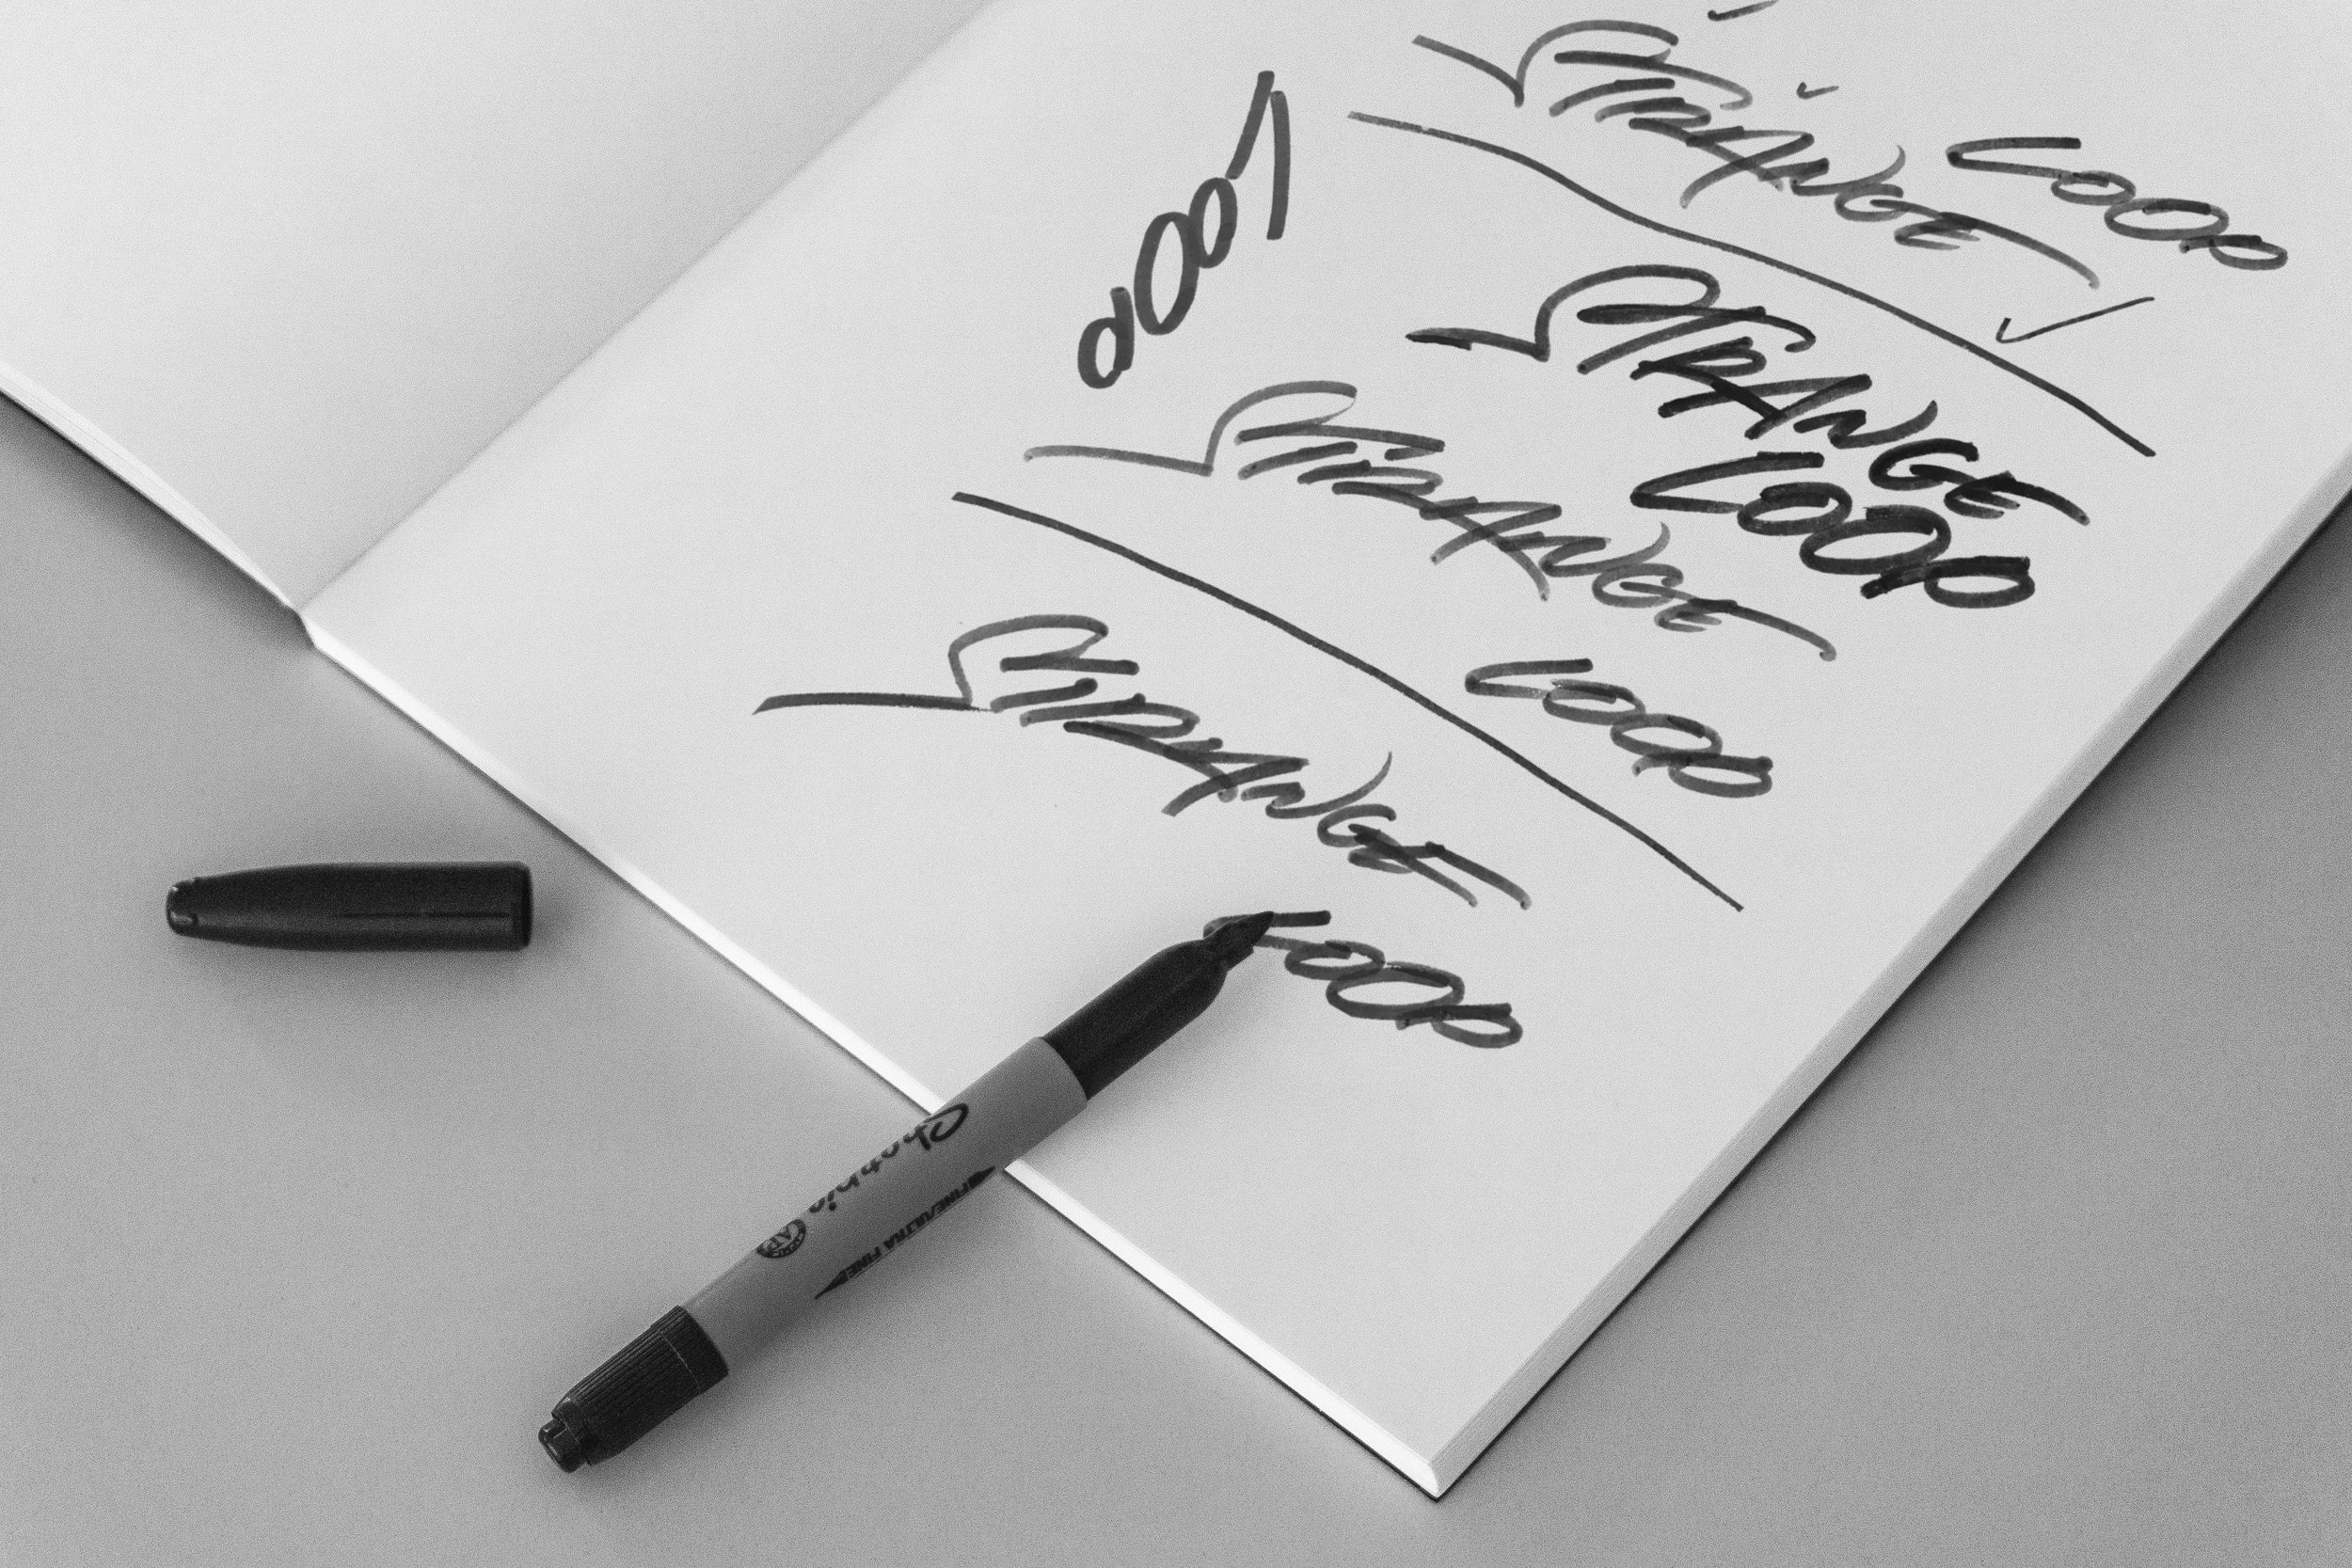 STRANGE
LOOP
LOOP
STRANGE
LOOP
STRANGE
LOOP
STRANGE
LOOP
Sharpie
FINE/ULTRA FINE
AP